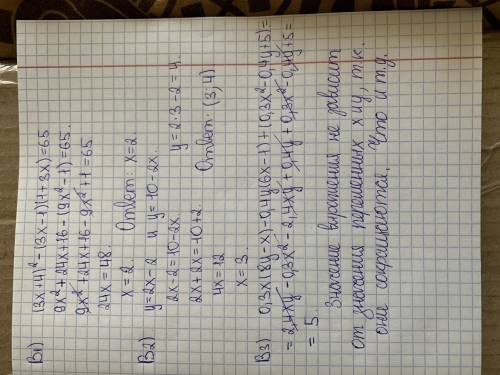 В1) (3x+4)² - (3x-1)(1+3x) = 65
9x²+24x+16 - (9x²-1) = 65.
9x²+24x+16-9x²+1 = 65
24x = 48.
x = 2.    Ответ: x=2
В2) y=2x-2 и y=10-2x.
2x-2=10-2x.    y=2·3-2=4.
2x+2x=10+2.
4x=12    Ответ: (3; 4)
x=3.
В3) 0,3x(8y-x)-0,4y(6x-1)+(0,3x²-0,4y+5)=
= 2,4xy-0,3x²-2,4xy+0,4y+0,3x²-0,4y+5=
= 5.
Значение выражения не зависит
от значения переменных x и y, т.к.
они сокращаются. Что и т.д.